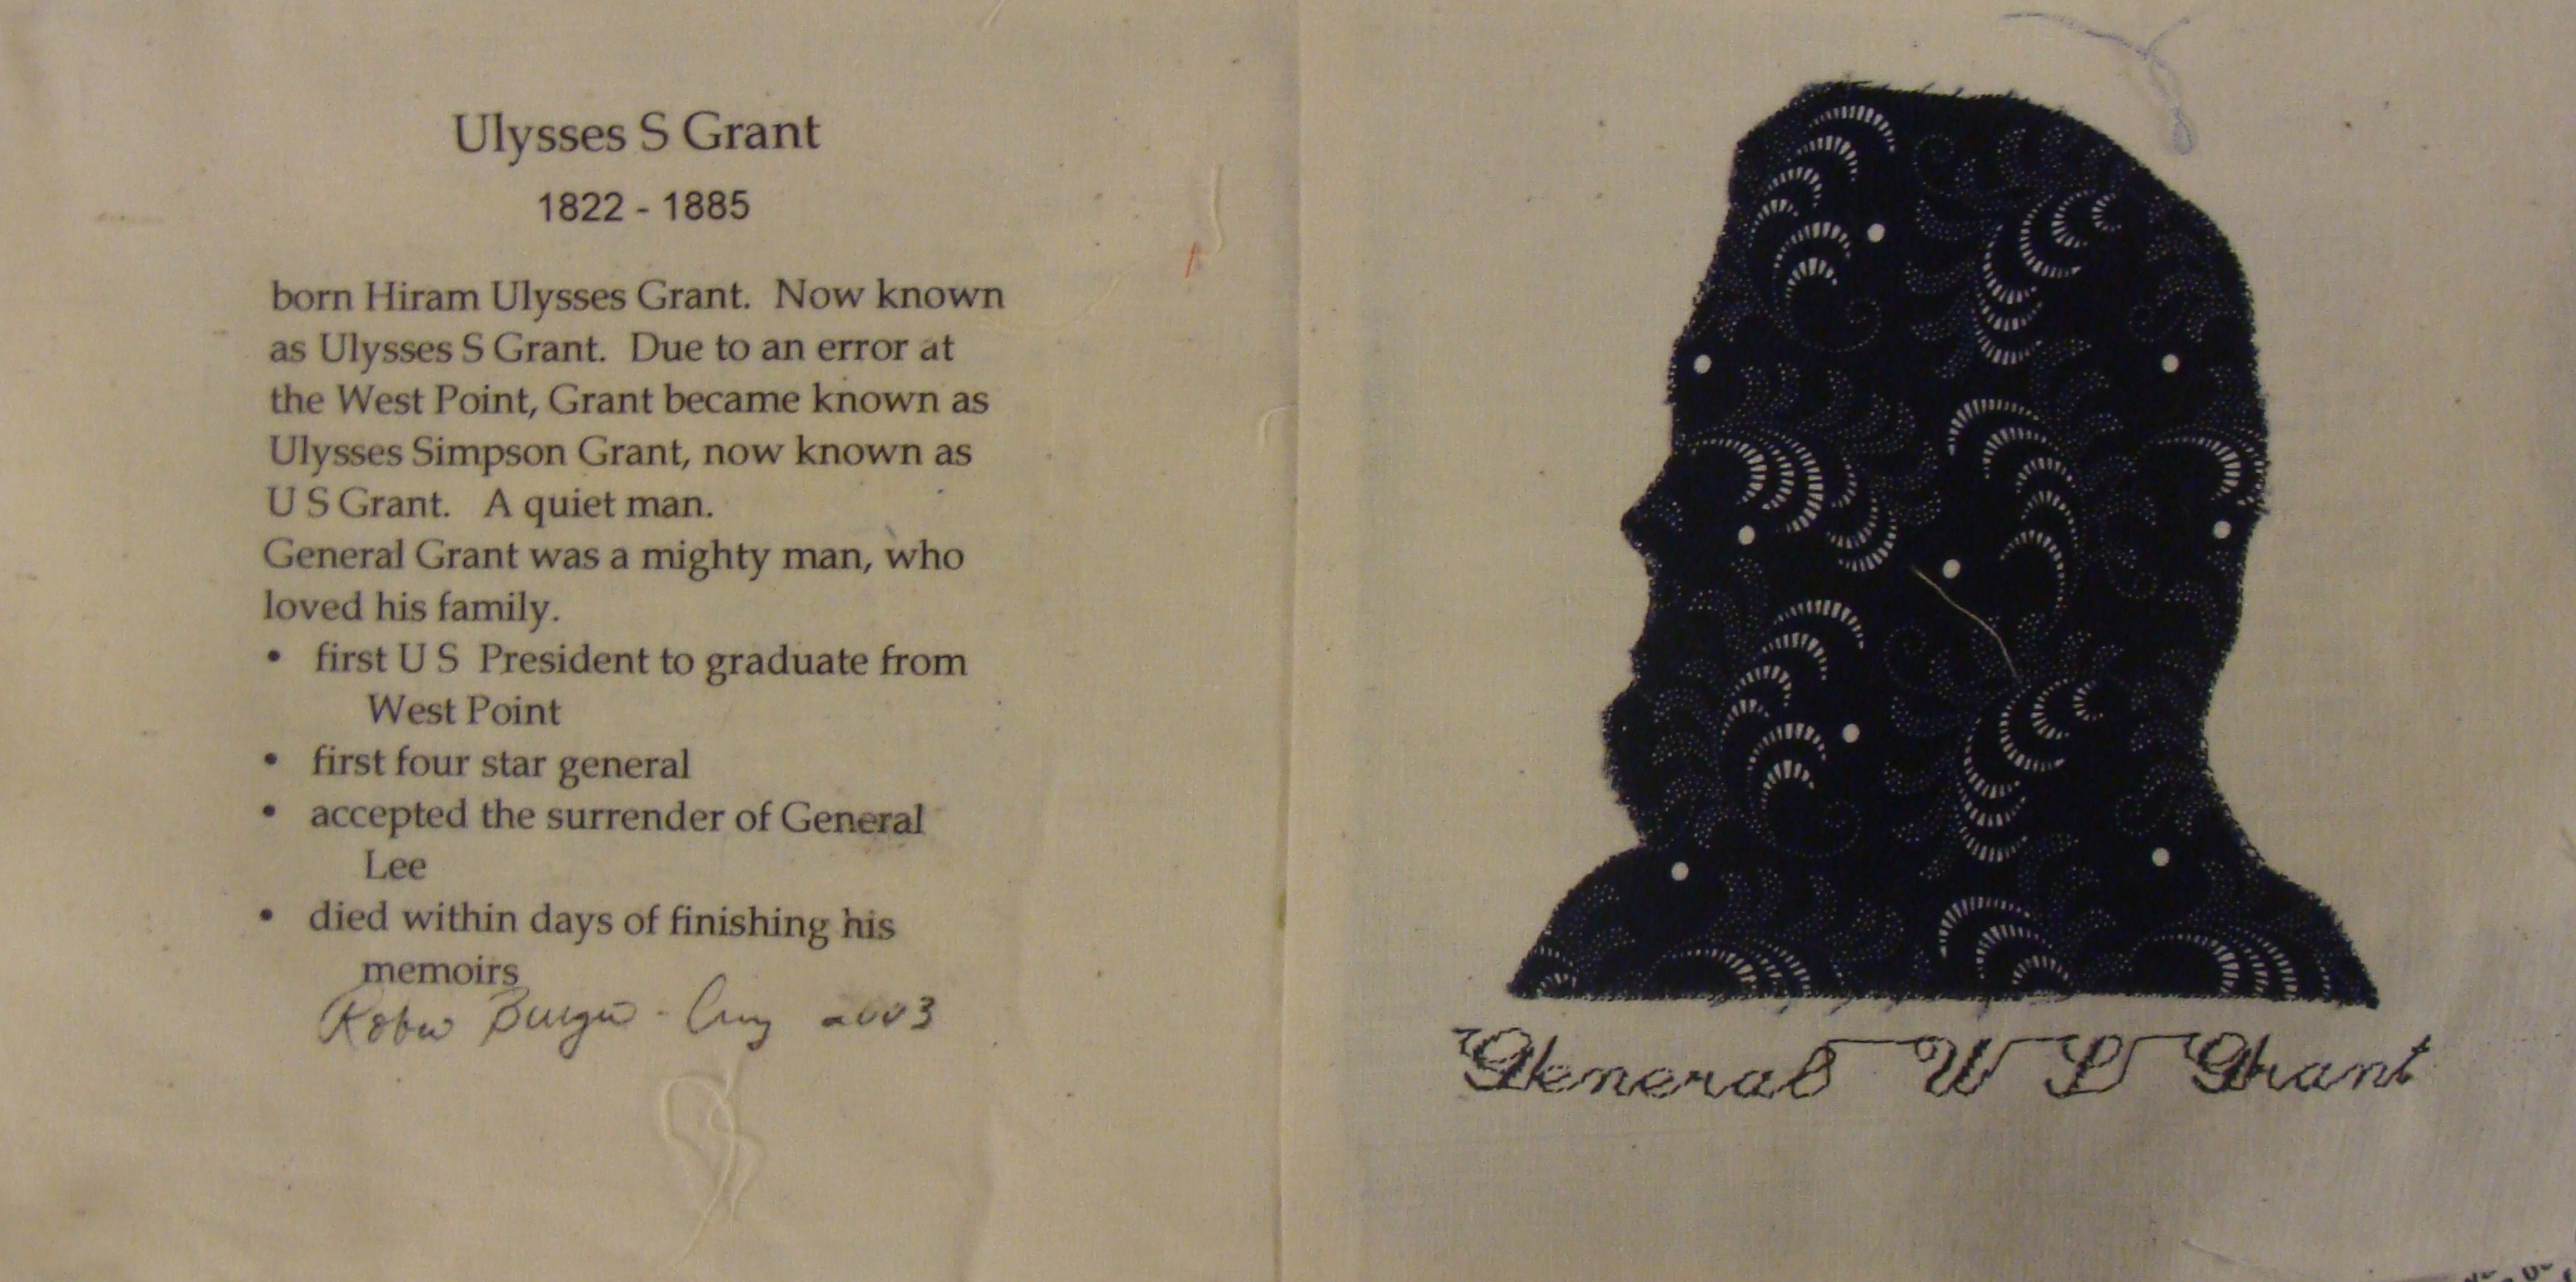 Ulysses S Grant
1822 - 1885
born Hiram Ulysses Grant. Now known
as Ulysses S Grant. Due to an error at
the West Point, Grant became known as
Ulysses Simpson Grant, now known as
U S Grant. A quiet man.
General Grant was a mighty man, who
loved his family.
• first U S President to graduate from
West Point
• first four star general
• accepted the surrender of General
Lee
• died within days of finishing his
memoirs
2003
General U S Grant